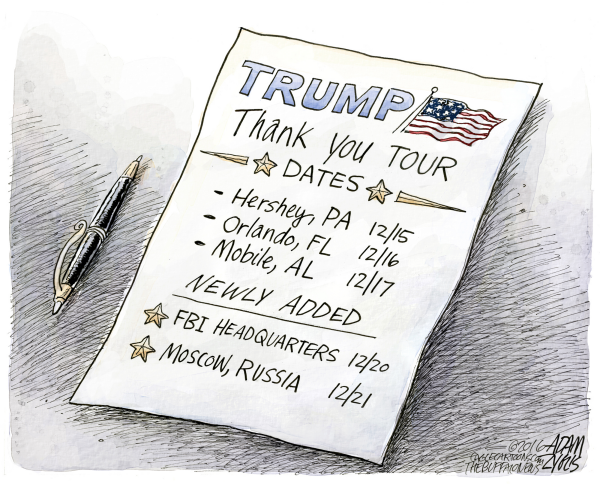 TRUMP
Thank you TOUR
DATES
- Hershey, PA 12/15
- Orlando, FL 12/16
- Mobile, AL 12/17
NEWLY ADDED
FBI HEADQUARTERS 12/20
MOSCOW, RUSSIA 12/21
©2016 ADAM
CAGLECARTOONS.COM
THE BUFFALO NEWS ZYGLIS